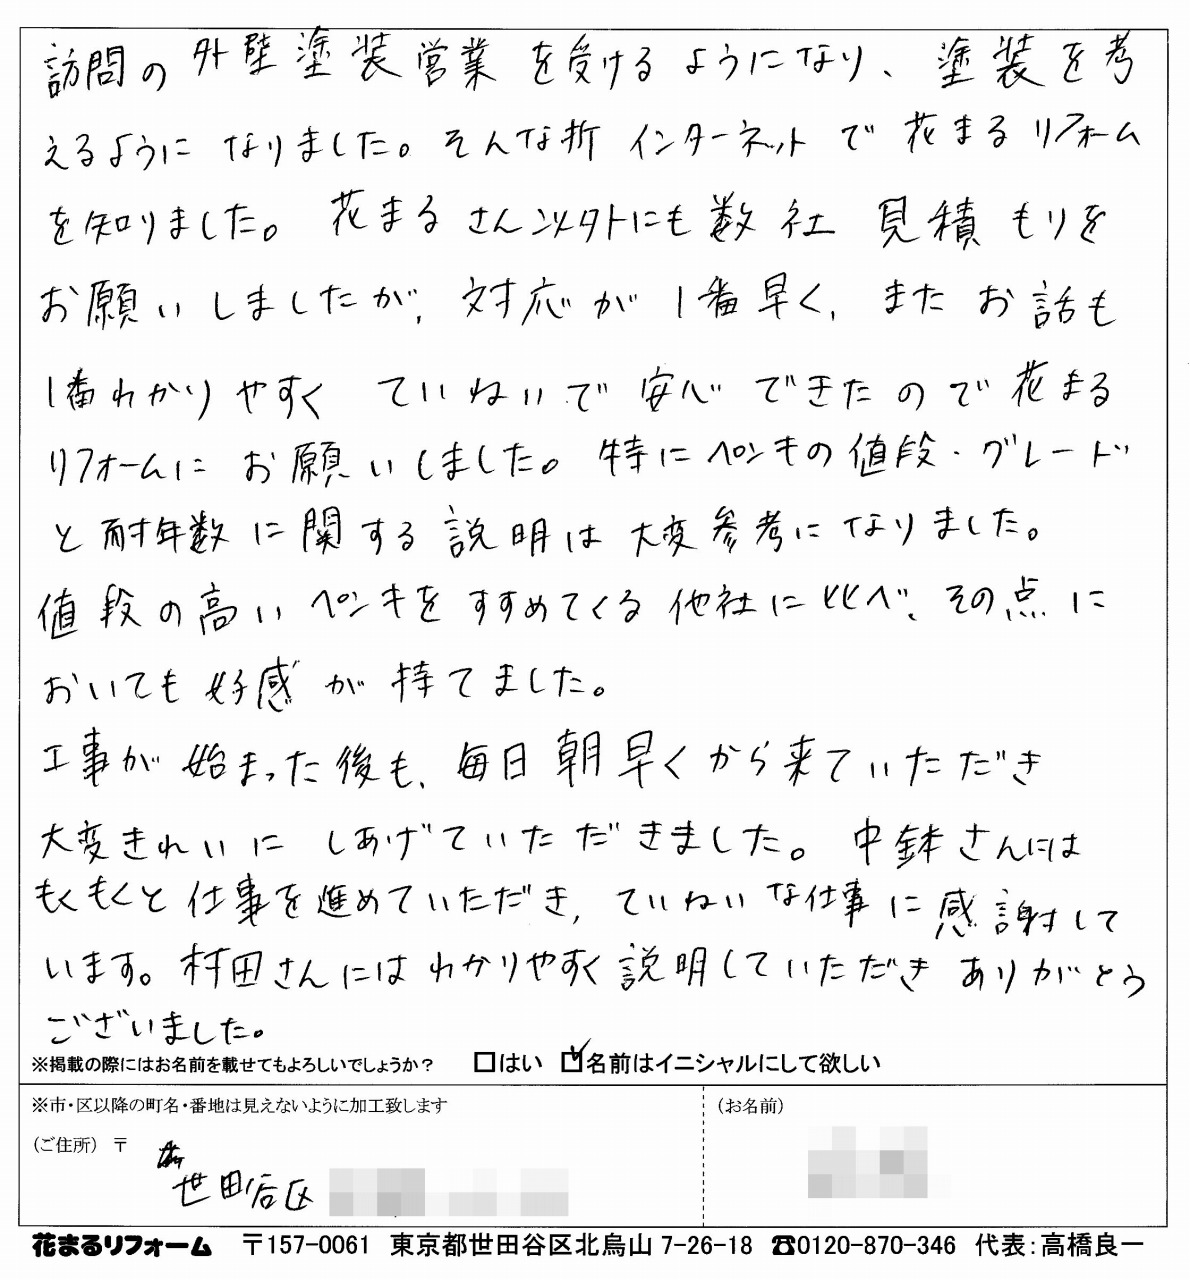 訪問の外壁塗装営業を受けるようになり、塗装を考
えるようになりました。そんな折インターネットで花まるリフォーム
を知りました。花まるさん以外にも数社見積もりを
お願いしましたが、対応が1番早く、またお話も
1番わかりやすくていねいで安心できたので花まる
リフォームにお願いしました。特にペンキの値段・グレード
と耐年数に関する説明は大変参考になりました。
値段の高いペンキをすすめてくる他社に比べ、その点に
おいても好感が持てました。
工事が始まった後も、毎日朝早くから来ていただき
大変きれいにしあげていただきました。中鉢さんには
もくもくと仕事を進めていただき、ていねいな仕事に感謝して
います。村田さんにはわかりやすく説明していただきありがとう
ございました。
※掲載の際にはお名前を載せてもよろしいでしょうか? □はい ☑名前はイニシャルにして欲しい
※市・区以降の町名・番地は見えないように加工致します
(お名前)
(ご住所) 〒
世田谷区
花まるリフォーム 〒157-0061 東京都世田谷区北烏山 7-26-18 ☎0120-870-346 代表:高橋良一